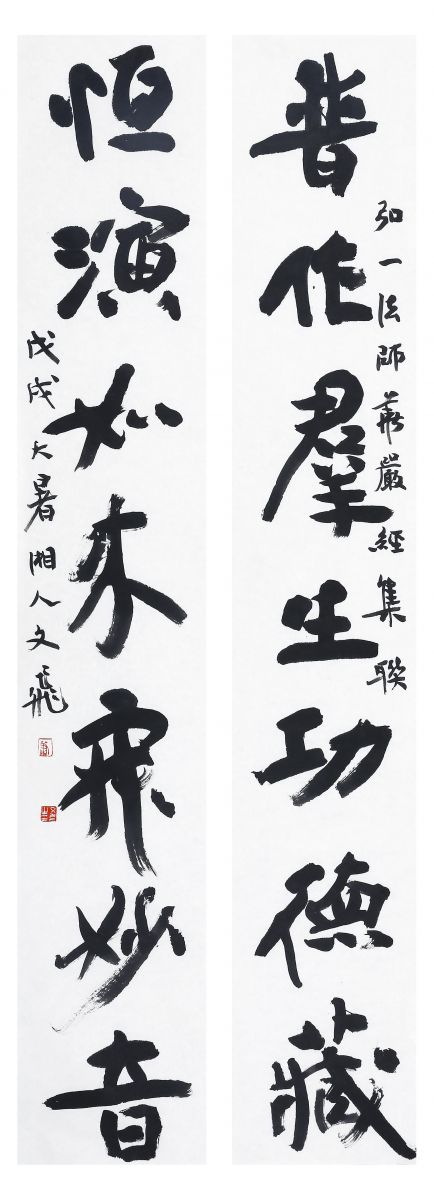 普作群生功德藏
弘一法師華嚴經集聯
恒演如來寂妙音
戊戌大暑湘人文飛